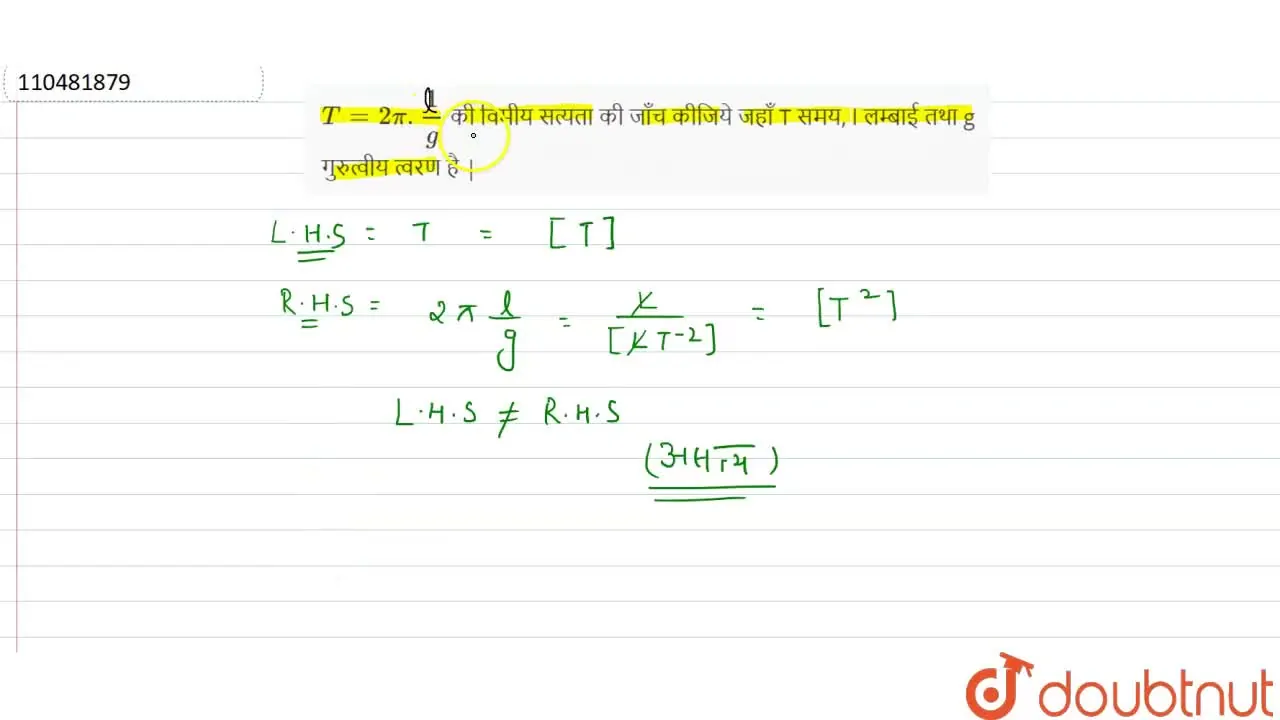 110481879
T = 2π. l/g की विमीय सत्यता की जाँच कीजिये जहाँ T समय, l लम्बाई तथा g
गुरुत्वीय त्वरण है |
L.H.S = T = [T]
R.H.S = 2π l/g = L/[LT-2] = [T²]
L.H.S ≠ R.H.S
(असत्य)
doubtnut